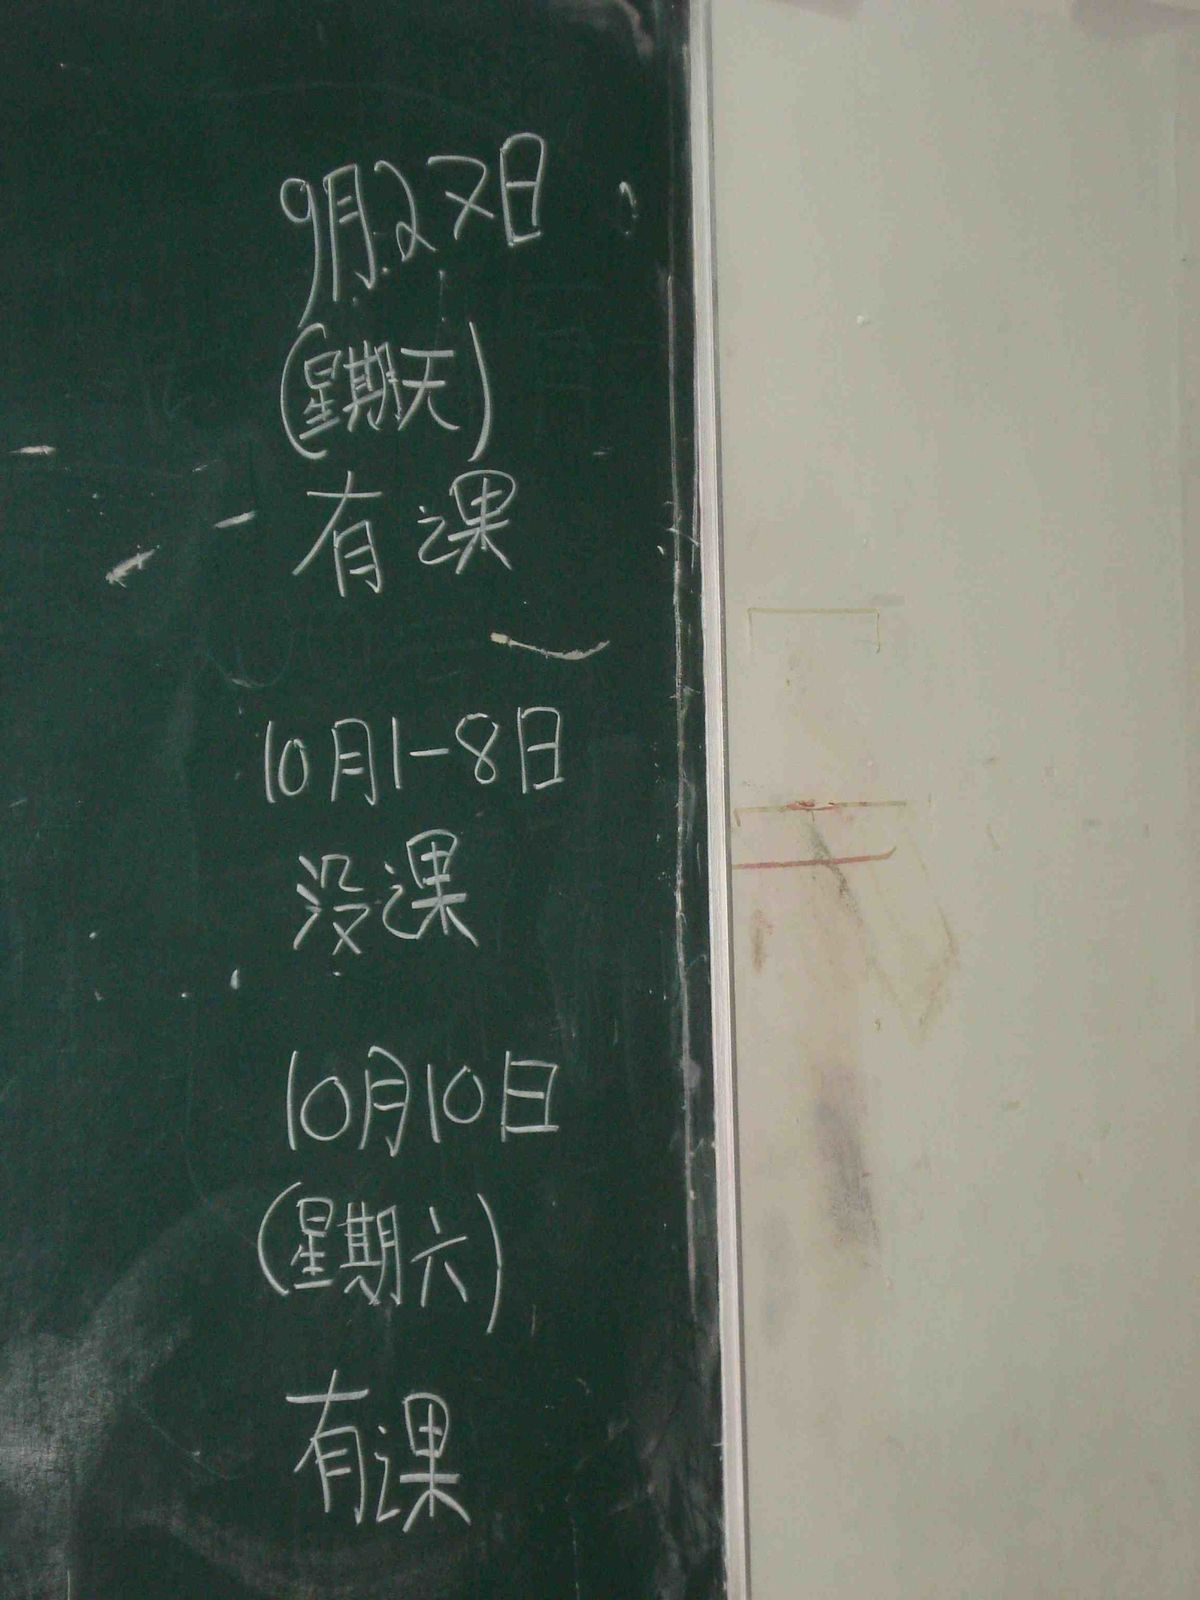 9月27日
(星期天)
有课
10月1-8日
没课
10月10日
(星期六)
有课